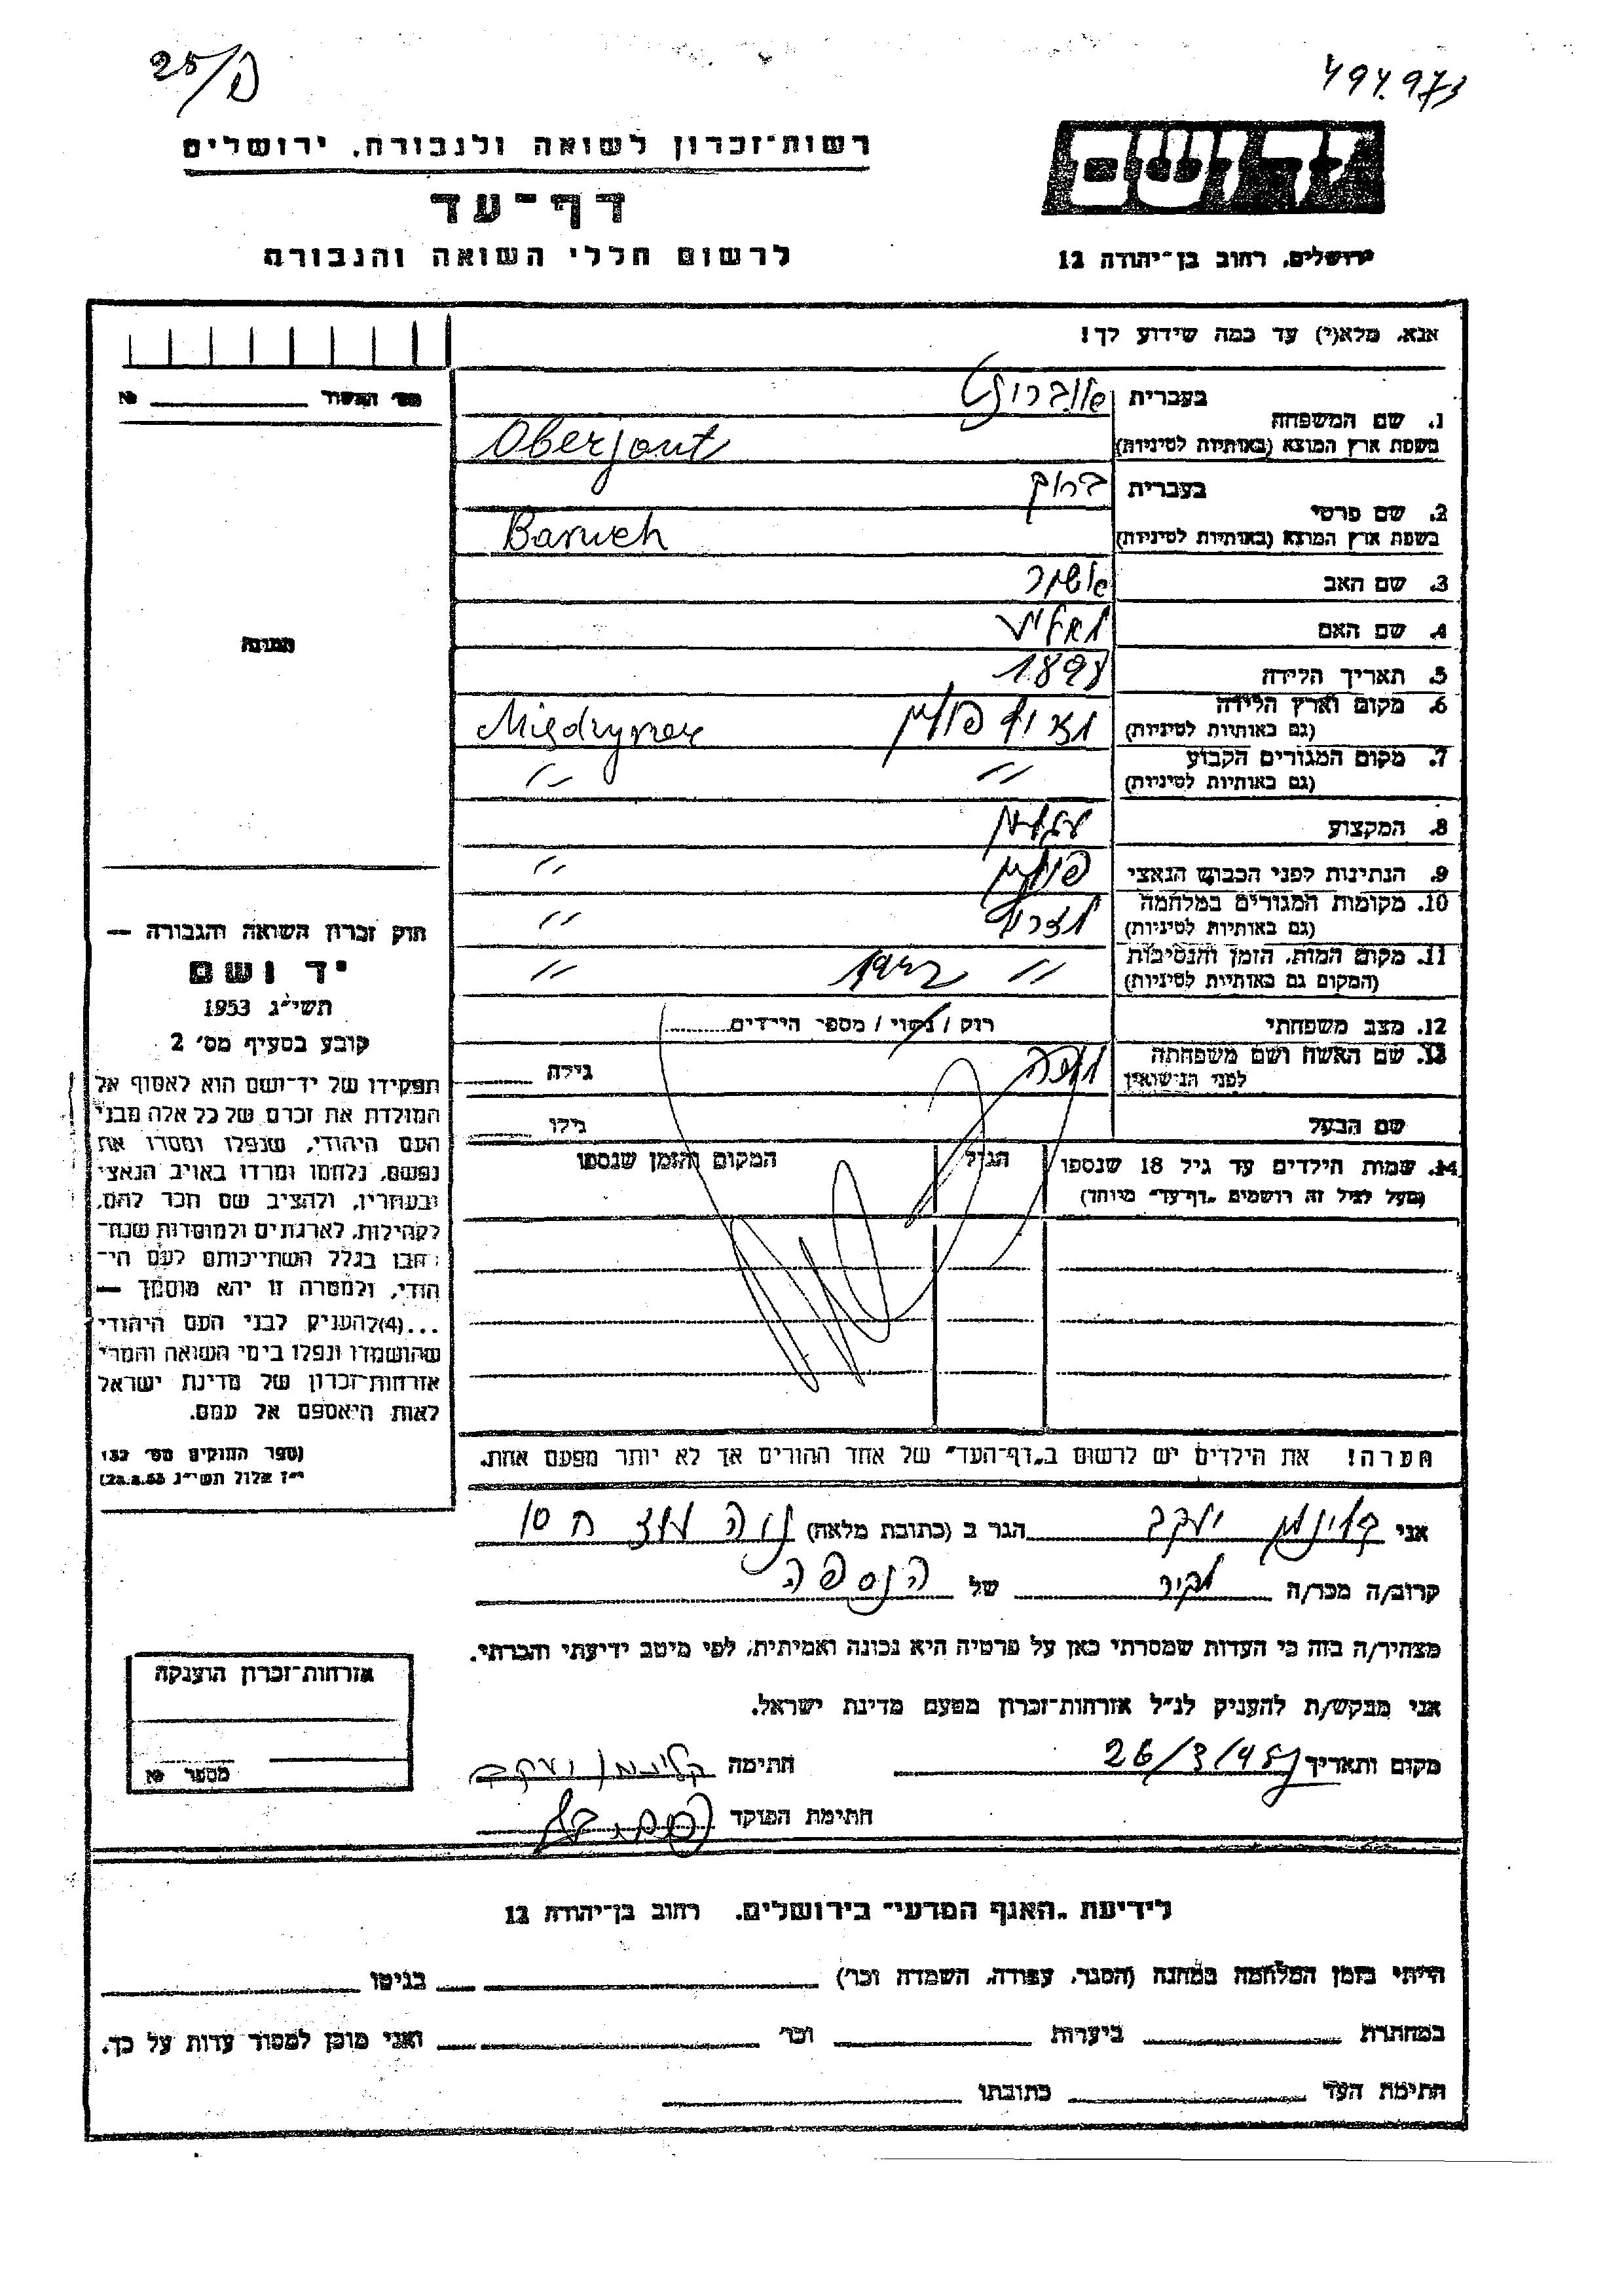 25/פ
רשות־זכרון לשואה ולגבורה, ירושלים
דף־עד
לרשום חללי השואה והגבורה
יד ושם
ירושלים, רחוב בן־יהודה 12
אנא, מלא(י) עד כמה שידוע לך!
מס׳ התשור №
1. שם המשפחה
בעברית
בשפת ארץ המוצא (באותיות לטיניות) Oberjant
2. שם פרטי
בעברית ברוך
בשפת ארץ המוצא (באותיות לטיניות) Baruch
3. שם האב אשר
4. שם האם
5. תאריך הלידה 1898
6. מקום וארץ הלידה פולין
(גם באותיות לטיניות)
7. מקום המגורים הקבוע 〃 〃
(גם באותיות לטיניות)
8. המקצוע
9. הנתינות לפני הכבוש הנאצי פולין 〃
10. מקומות המגורים במלחמה 〃
(גם באותיות לטיניות)
11. מקום המות, הזמן והנסיבות 〃 1942 〃
(המקום גם באותיות לטיניות)
12. מצב משפחתי רווק / נשוי / מספר הילדים
13. שם האשה ושם משפחתה
לפני הנישואין גילה
שם הבעל גילו
14. שמות הילדים עד גיל 18 שנספו הגיל המקום והזמן שנספו
(מעל לגיל זה רושמים „דף־עד״ מיוחד)
הערה! את הילדים יש לרשום ב„דף־העד״ של אחד ההורים אך לא יותר מפעם אחת.
תמונה
חוק זכרון השואה והגבורה —
יד ושם
תשי״ג 1953
קובע בסעיף מס׳ 2
תפקידו של יד־ושם הוא לאסוף אל
המולדת את זכרם של כל אלה מבני
העם היהודי, שנפלו ומסרו את
נפשם, נלחמו ומרדו באויב הנאצי
ובעוזריו, ולהציב שם וזכר להם,
לקהילות, לארגונים ולמוסדות שנח־
רבו בגלל השתייכותם לעם הי־
הודי, ולמטרה זו יהא מוסמך —
...(4) להעניק לבני העם היהודי
שהושמדו ונפלו בימי השואה והמרי
אזרחות־זכרון של מדינת ישראל
לאות היאספם אל עמם.
(ספר החוקים מס׳ 132
י״ז אלול תשי״ג 28.8.53)
אני קלינמן יעקב הגר ב (כתובת מלאה)
קרוב/ה מכר/ה מכיר של הנספה
מצהיר/ה בזה כי העדות שמסרתי כאן על פרטיה היא נכונה ואמיתית, לפי מיטב ידיעתי והכרתי.
אני מבקש/ת להעניק לנ״ל אזרחות־זכרון מטעם מדינת ישראל.
מקום ותאריך חתימה קלינמן יעקב
חתימת הפוקד
אזרחות־זכרון הוענקה
מספר №
לידיעת „האגף המדעי״ בירושלים, רחוב בן־יהודה 12
הייתי בזמן המלחמה במחנה (הסגר, עבודה, השמדה וכר׳) בגיטו
במחתרת ביערות וכר׳ ואני מוכן למסור עדות על כך.
חתימת העד כתובתו